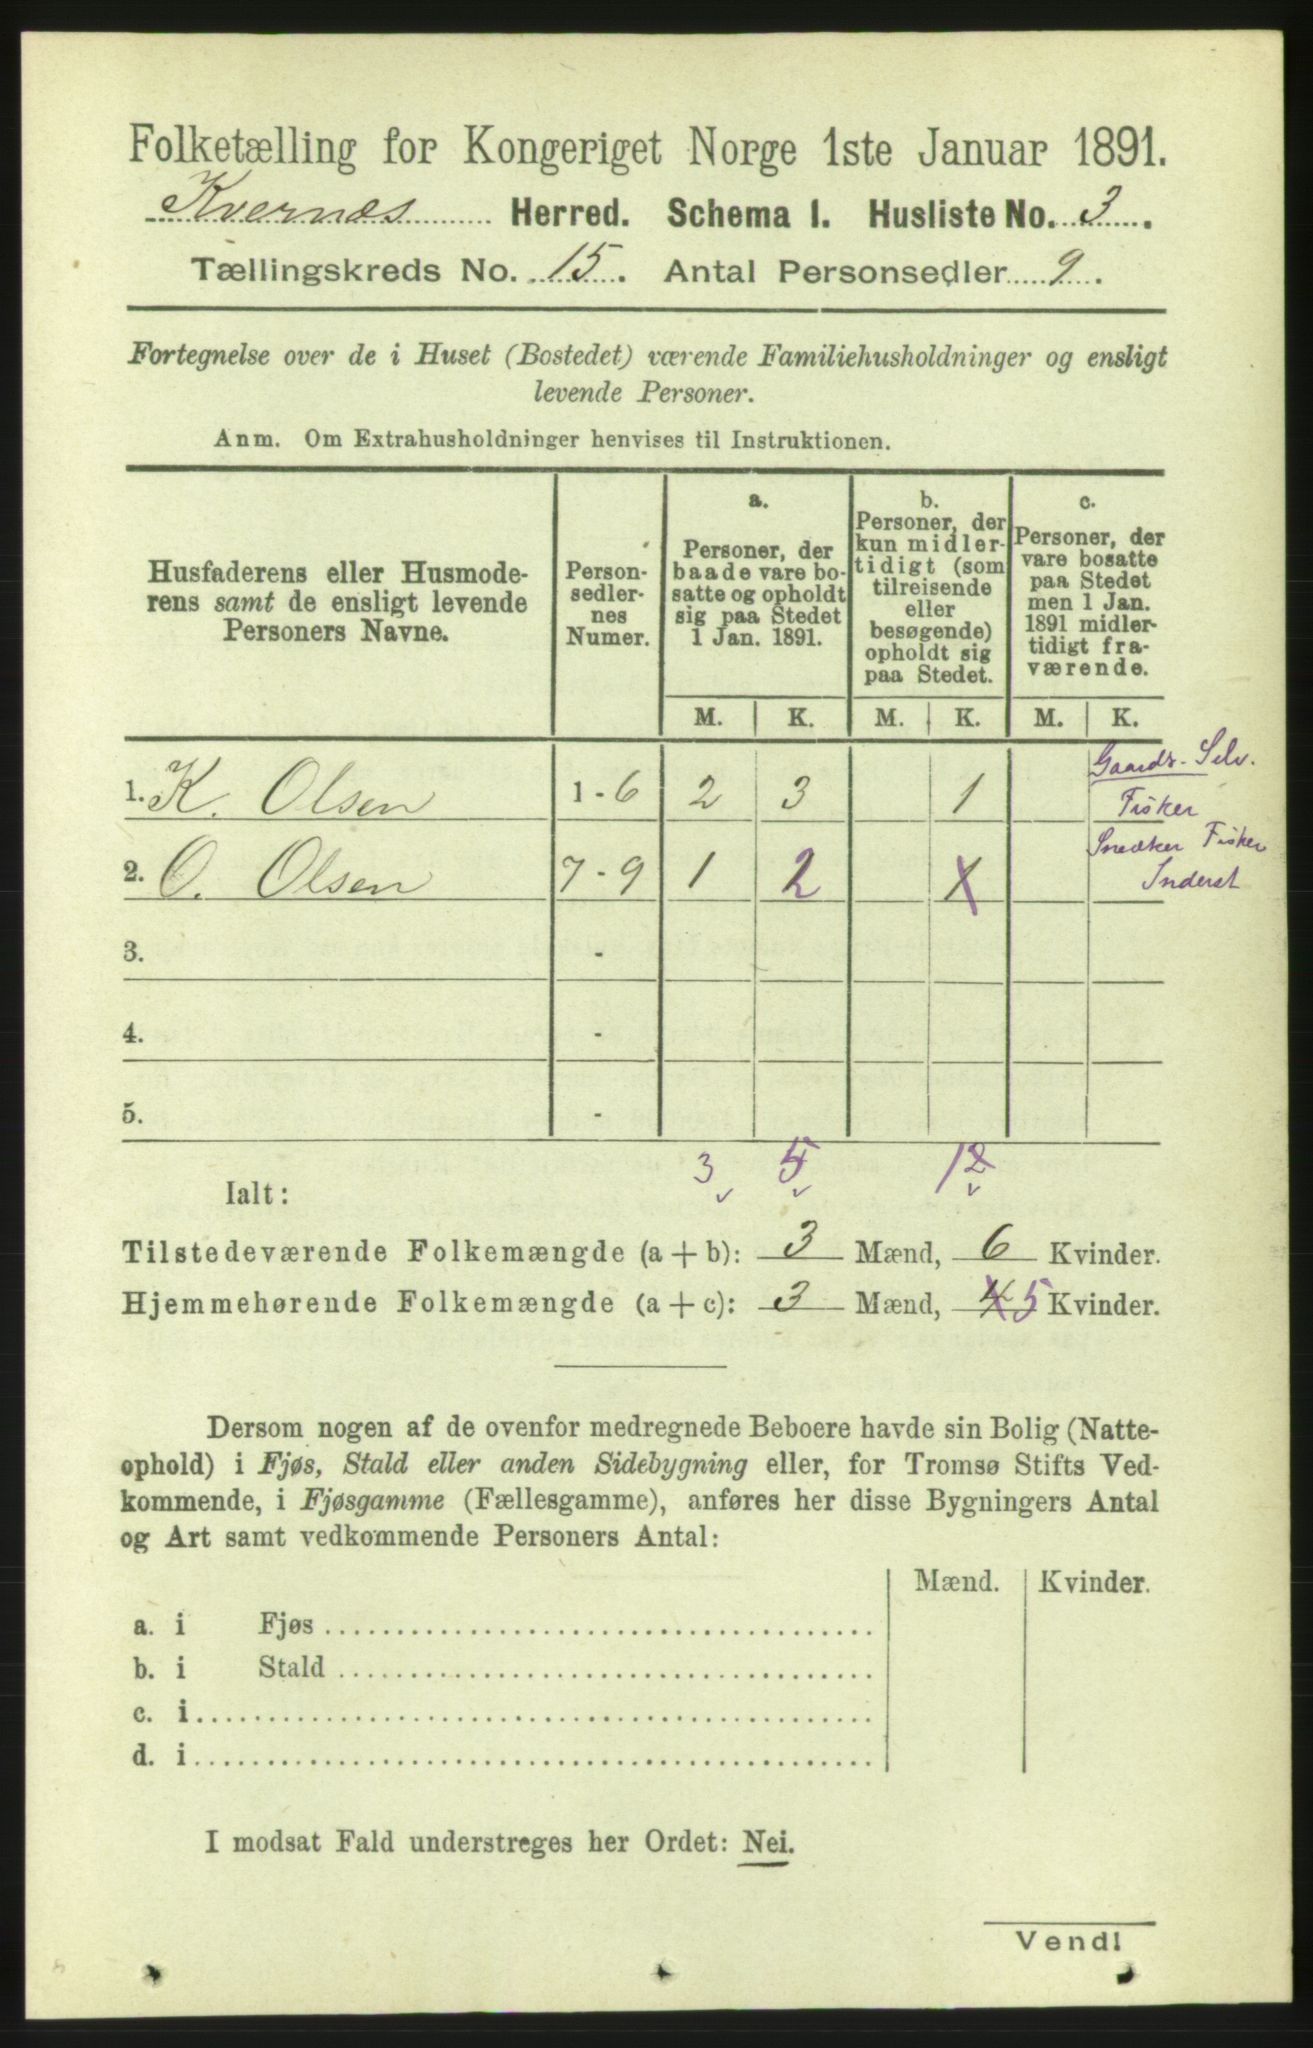 Folketælling for Kongeriget Norge 1ste Januar 1891.
Kvernæs Herred. Schema I. Husliste No. 3.
Tællingskreds No. 15. Antal Personsedler 9.
Fortegnelse over de i Huset (Bostedet) værende Familiehusholdninger og ensligt
levende Personer.
Anm. Om Extrahusholdninger henvises til Instruktionen.
Husfaderens eller Husmode-
rens samt de ensligt levende
Personers Navne.
Person-
sedler-
nes
Numer.
a.
Personer, der
baade vare bo-
satte og opholdt
sig paa Stedet
1 Jan. 1891.
b.
Personer, der
kun midler-
tidigt (som
tilreisende
eller
besøgende)
opholdt sig
paa Stedet.
c.
Personer, der
vare bosatte
paa Stedet
men 1 Jan.
1891 midler-
tidigt fra-
værende.
M. K. M. K. M. K.
Gaards- Selv.
1. K. Olsen 1 - 6 2 3 1 Fisker
Snedker Fisker
2. O. Olsen 7 - 9 1 2 1 Inderst
3. -
4. -
5. -
3 5 1 2
Ialt:
Tilstedeværende Folkemængde (a + b): 3 Mænd, 6 Kvinder.
Hjemmehørende Folkemængde (a + c): 3 Mænd, 4 5 Kvinder.
Dersom nogen af de ovenfor medregnede Beboere havde sin Bolig (Natte-
ophold) i Fjøs, Stald eller anden Sidebygning eller, for Tromsø Stifts Ved-
kommende, i Fjøsgamme (Fællesgamme), anføres her disse Bygningers Antal
og Art samt vedkommende Personers Antal:
Mænd. Kvinder.
a. i Fjøs
b. i Stald
c. i
d. i
I modsat Fald understreges her Ordet: Nei.
Vend!